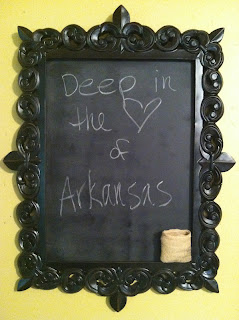 Deep in
the ♡
of
Arkansas